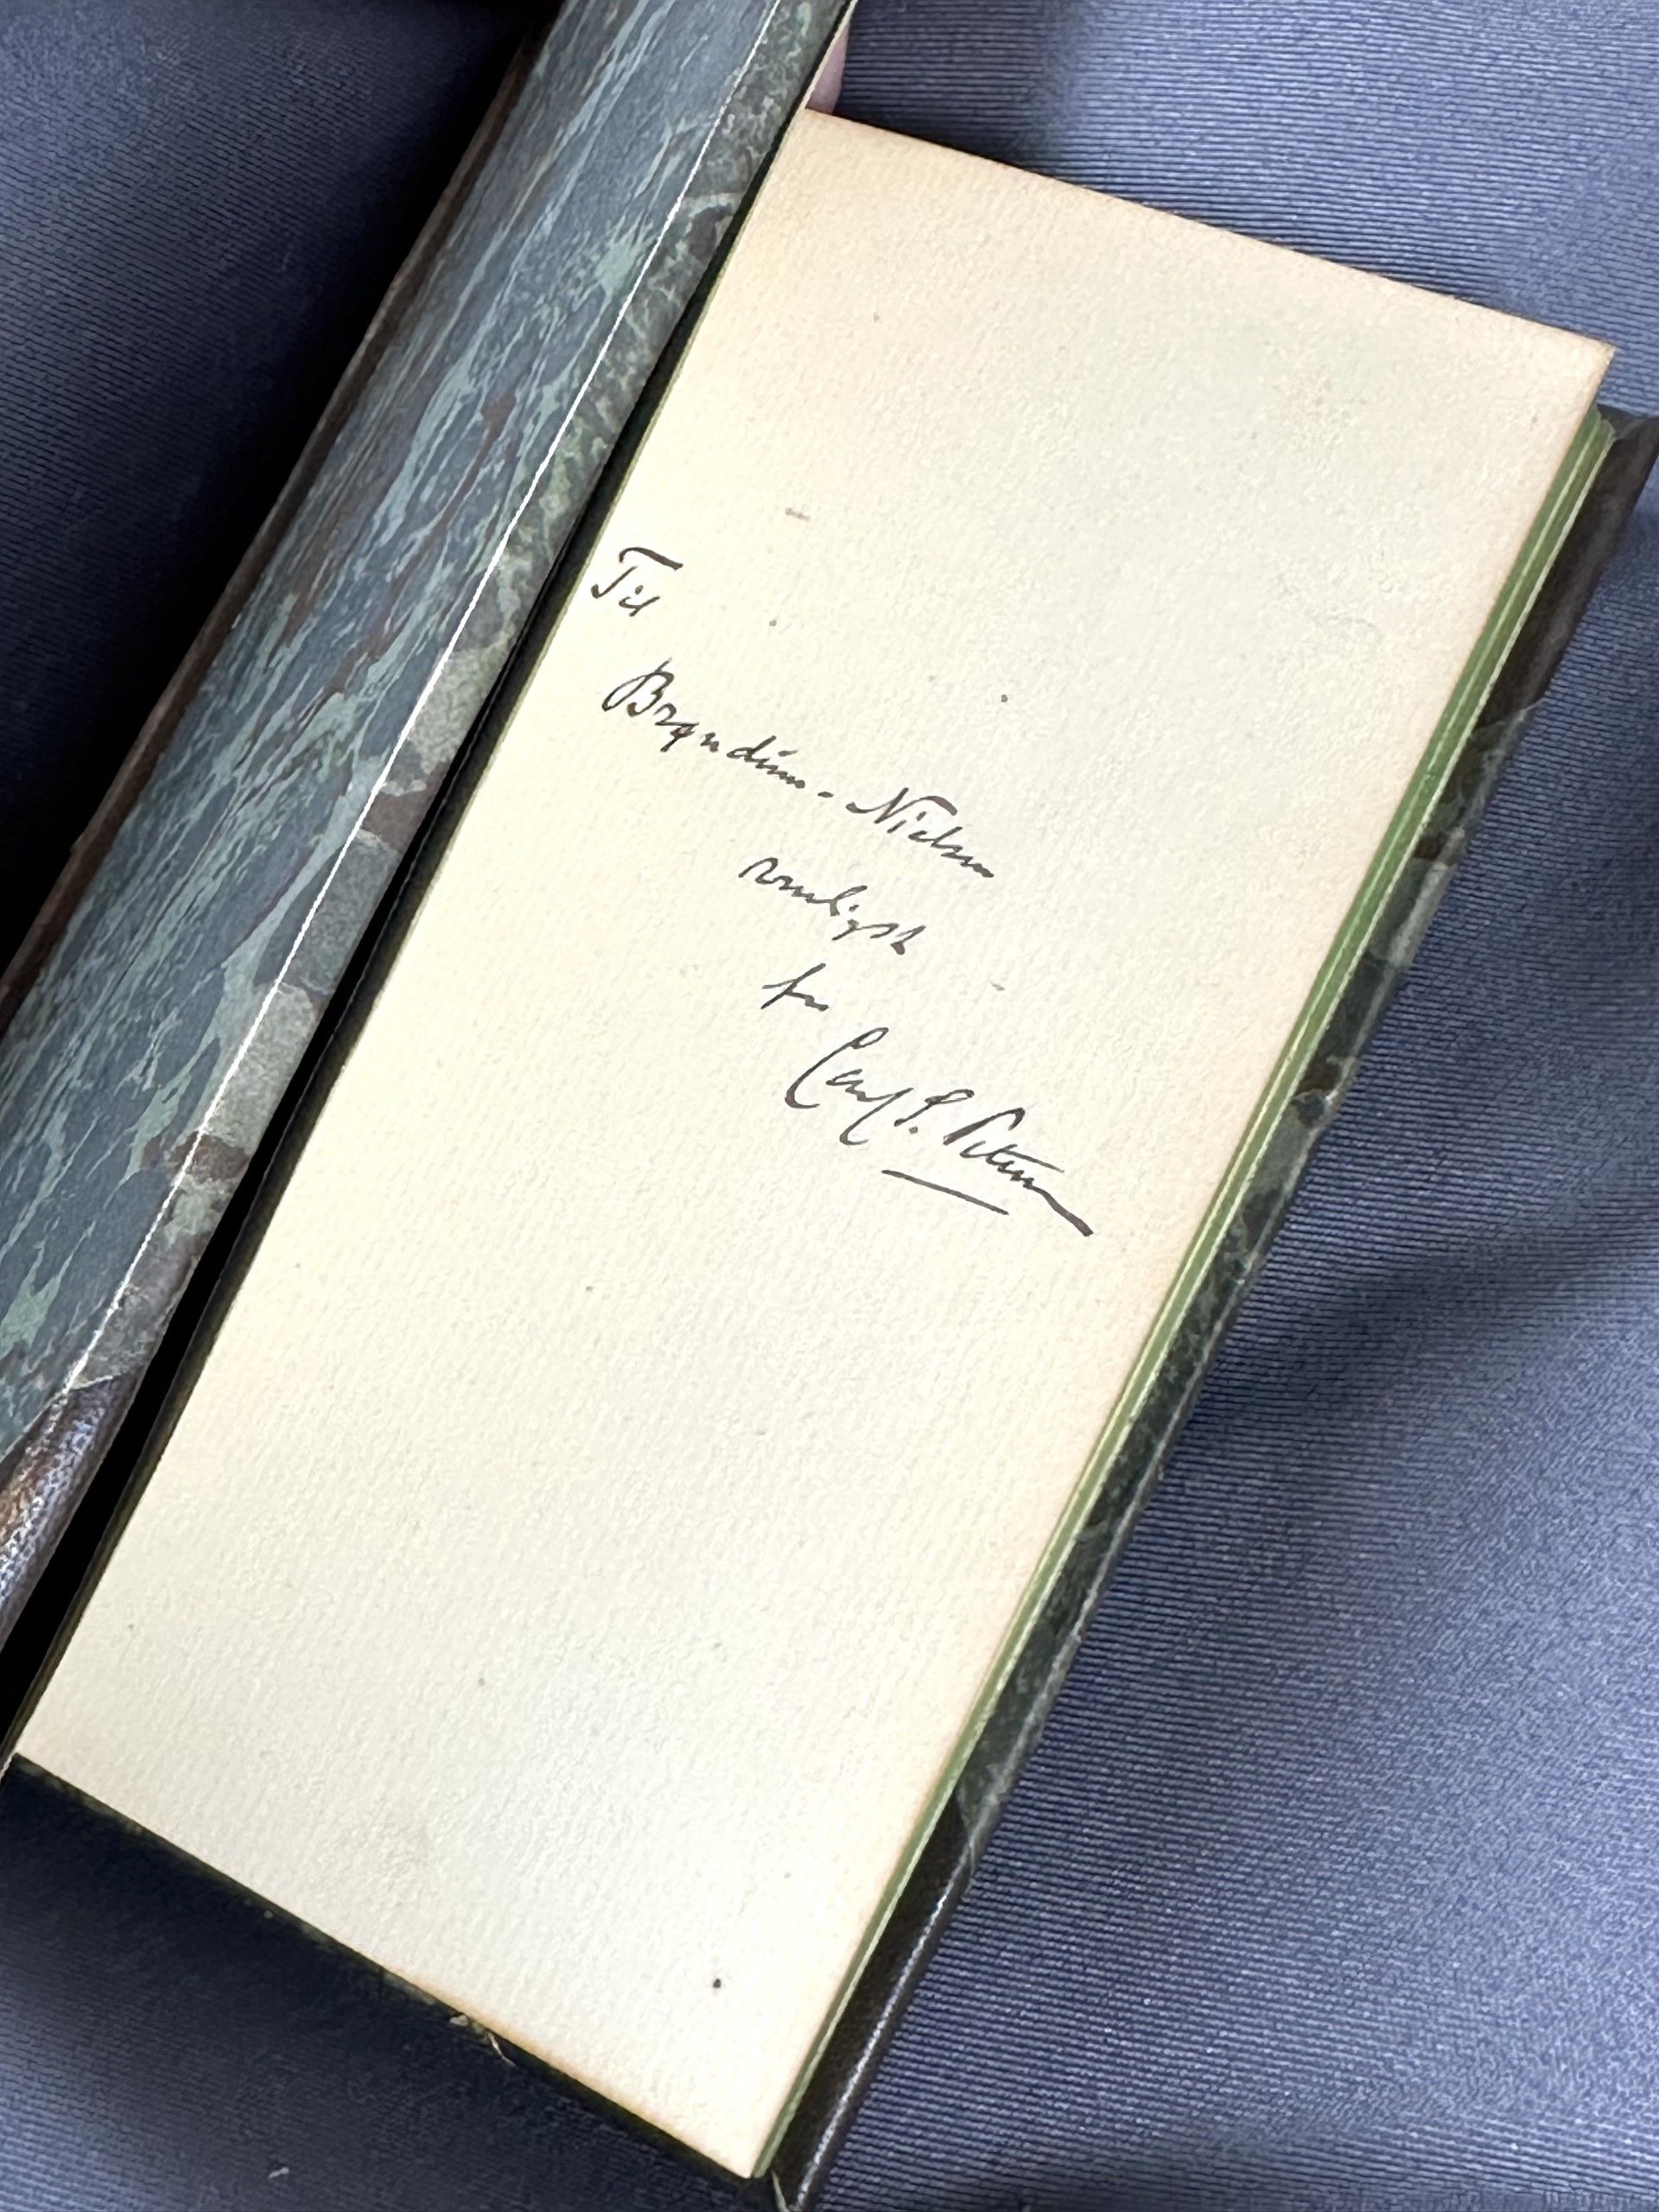 Til
Brøndum-Nielsen
venligst
fra
Carl S. Petersen